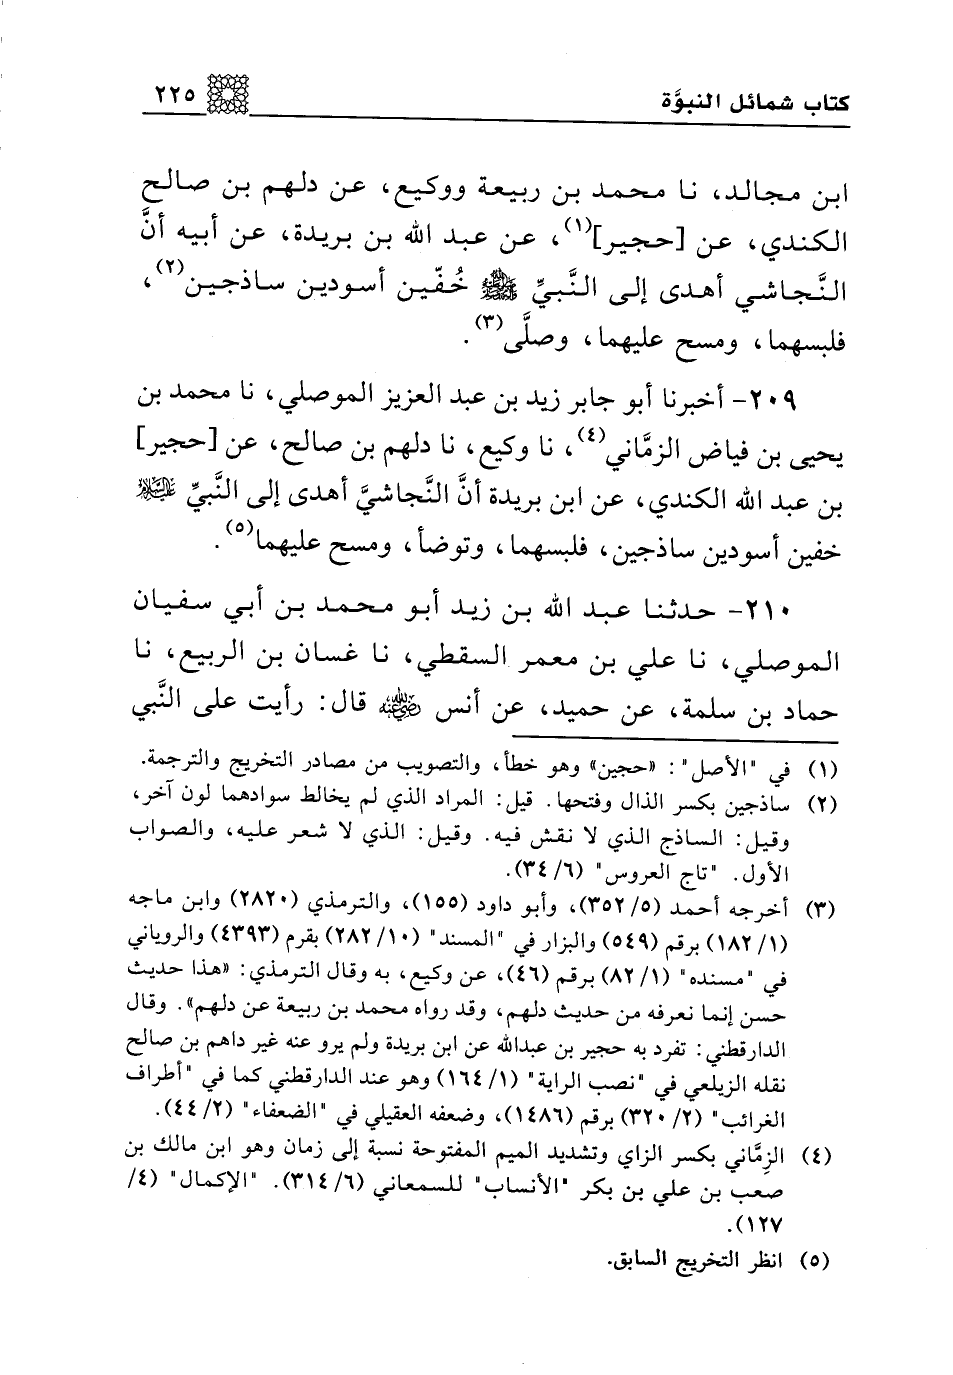 كتاب شمائل النبوَّة ٢٢٥
ابن مجالد، نا محمد بن ربيعة ووكيع، عن دلهم بن صالح
الكندي، عن [حجير](١)، عن عبد الله بن بريدة، عن أبيه أنَّ
النَّجاشي أهدى إلى النَّبيِّ ﷺ خُفّين أسودين ساذجين(٢)،
فلبسهما، ومسح عليهما، وصلَّى(٣).
٢٠٩- أخبرنا أبو جابر زيد بن عبد العزيز الموصلي، نا محمد بن
يحيى بن فياض الزمَّاني(٤)، نا وكيع، نا دلهم بن صالح، عن [حجير]
بن عبد الله الكندي، عن ابن بريدة أنَّ النَّجاشيَّ أهدى إلى النَّبيِّ عليه السلام
خفين أسودين ساذجين، فلبسهما، وتوضأ، ومسح عليهما(٥).
٢١٠- حدثنا عبد الله بن زيد أبو محمد بن أبي سفيان
الموصلي، نا علي بن معمر السقطي، نا غسان بن الربيع، نا
حماد بن سلمة، عن حميد، عن أنس رضي الله عنه قال: رأيت على النَّبي
(١) في "الأصل": «حجين» وهو خطأ، والتصويب من مصادر التخريج والترجمة.
(٢) ساذجين بكسر الذال وفتحها. قيل: المراد الذي لم يخالط سوادهما لون آخر،
وقيل: الساذج الذي لا نقش فيه. وقيل: الذي لا شعر عليه، والصواب
الأول. "تاج العروس" (٦/٣٤).
(٣) أخرجه أحمد (٥/٣٥٢)، وأبو داود (١٥٥)، والترمذي (٢٨٢٠) وابن ماجه
(١/١٨٢) برقم (٥٤٩) والبزار في "المسند" (١٠/٢٨٢) بقرم (٤٣٩٣) والروياني
في "مسنده" (١/٨٢) برقم (٤٦)، عن وكيع، به وقال الترمذي: «هذا حديث
حسن إنما نعرفه من حديث دلهم، وقد رواه محمد بن ربيعة عن دلهم». وقال
الدارقطني: تفرد به حجير بن عبدالله عن ابن بريدة ولم يرو عنه غير داهم بن صالح
نقله الزيلعي في "نصب الراية" (١/١٦٤) وهو عند الدارقطني كما في "أطراف
الغرائب" (٢/٣٢٠) برقم (١٤٨٦)، وضعفه العقيلي في "الضعفاء" (٢/٤٤).
(٤) الزِمَّاني بكسر الزاي وتشديد الميم المفتوحة نسبة إلى زمان وهو ابن مالك بن
صعب بن علي بن بكر "الأنساب" للسمعاني (٦/٣١٤). "الإكمال" (٤/
١٢٧).
(٥) انظر التخريج السابق.